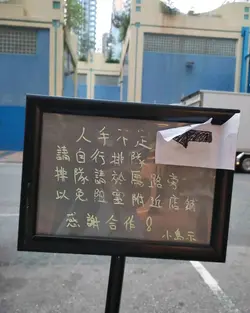 人手不足
請自行排隊
排隊請於馬路旁
以免阻塞附近店鋪
感謝合作!
小島示